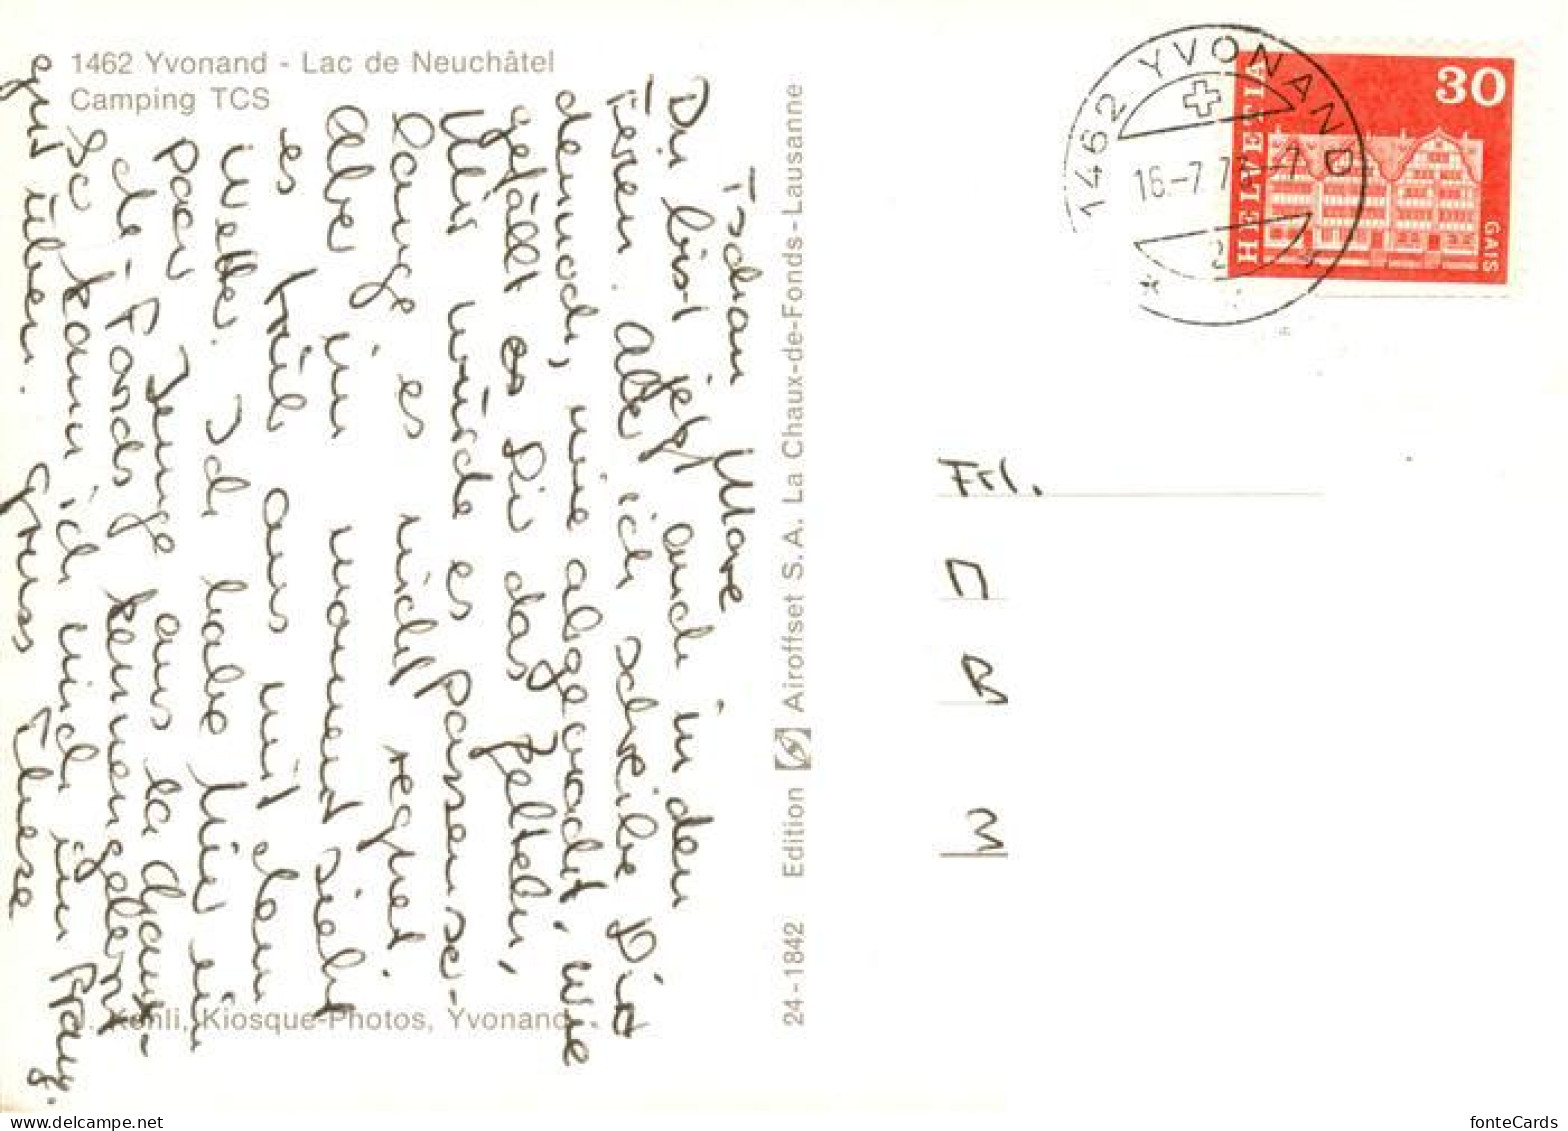 1462 Yvonand - Lac de Neuchâtel
Camping TCS
Tschau
Du bist jetzt auch in den
Ferien. Aber ich schreibe Dir
dennoch, wie abgemacht. Wie
gefällt es Dir das Zelteln,
Mir würde es passen so-
lange es nicht regnet.
Aber im moment sieht
es trüb aus mit dem
Wetter. Ich habe hier ein
paar Jungs aus La Chaux-
de-Fonds kennengelernt
So kann ich mich im Franz.
üben. Gruss
J. Kohli, Kiosque-Photos, Yvonand
24-1842 Edition Airoffset S.A. La Chaux-de-Fonds-Lausanne
1462 YVONAND
16.-7.7
HELVETIA
30
GAIS
Frl.
M
B
3
fonteCards
delcampe.net